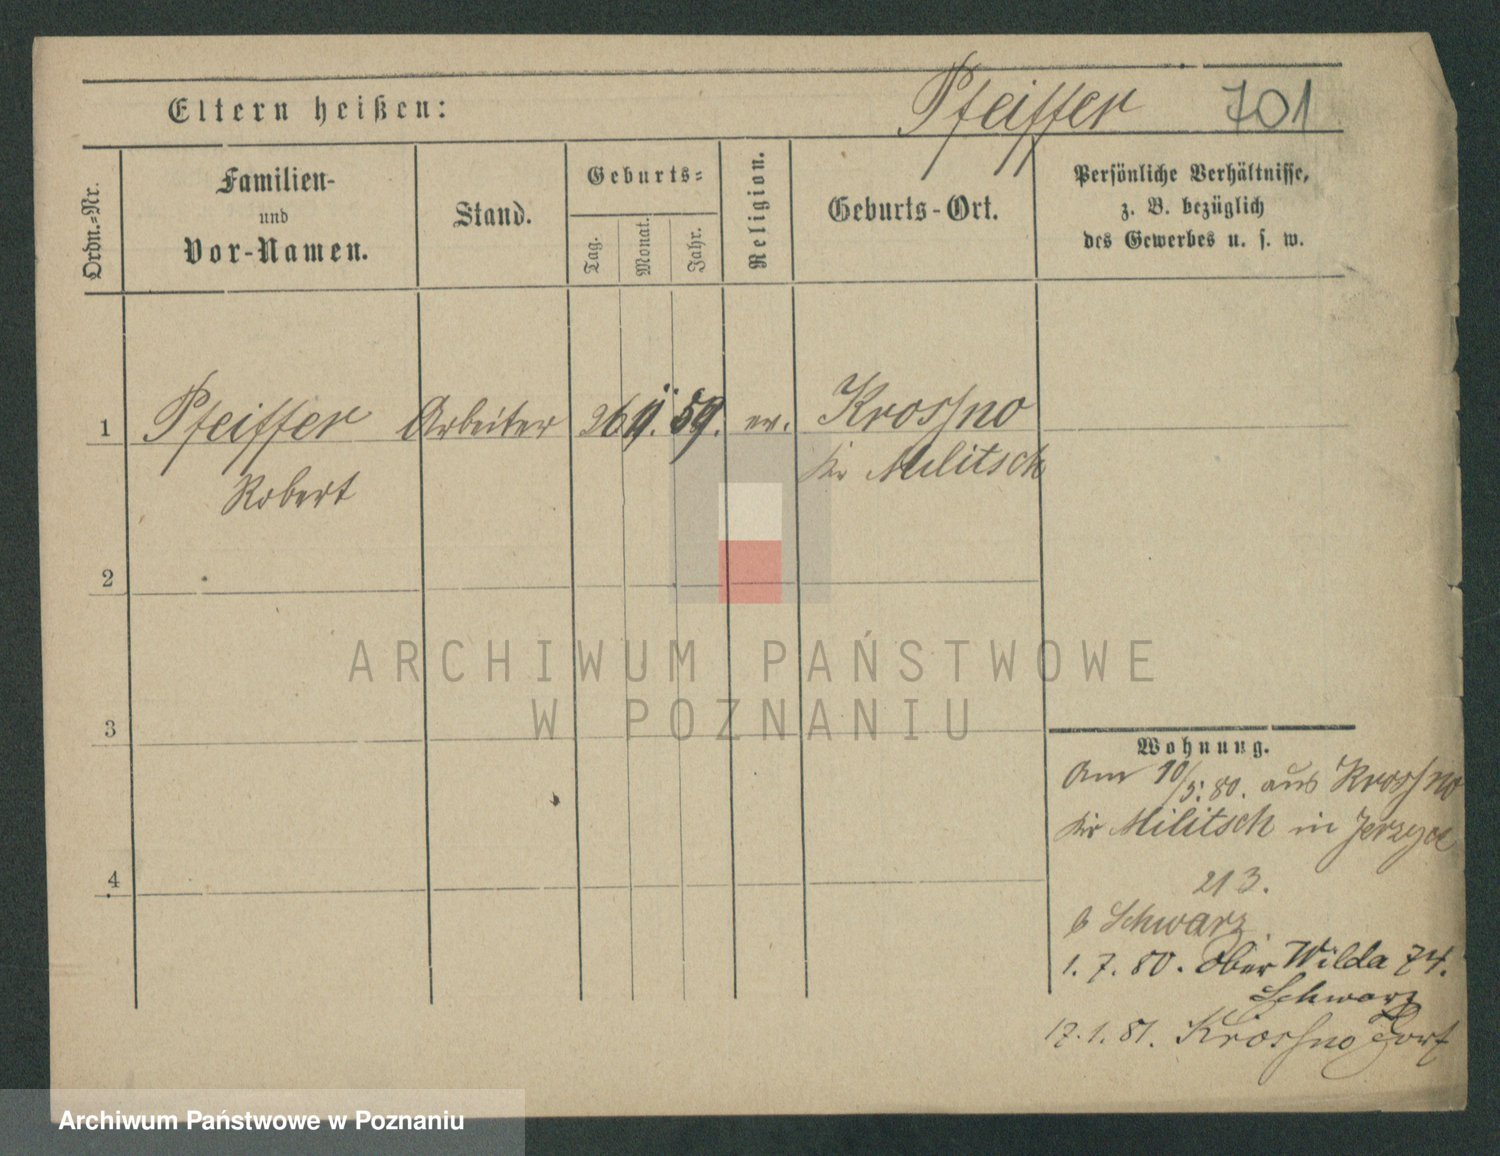 Eltern heißen:
Pfeiffer 701
Ordn.=Nr.
Familien-
und
Vor-Namen.
Stand.
Geburts=
Tag.
Monat.
Jahr.
Religion.
Geburts-Ort.
Persönliche Verhältnisse,
z. B. bezüglich
des Gewerbes u. s. w.
1 Pfeiffer Arbeiter 26 59. ev. Krosſno
Robert
Kr Militsch
2
3
4
ARCHIWUM PAŃSTWOWE
W POZNANIU
Wohnung.
Am 10/5. 80. aus Krosſno
Kr Militsch in Jerzyce
213.
b Schwarz.
1. 7. 80. Ober Wilda 74.
Schwarz
17. 1. 81. Krosſno Dorf
Archiwum Państwowe w Poznaniu